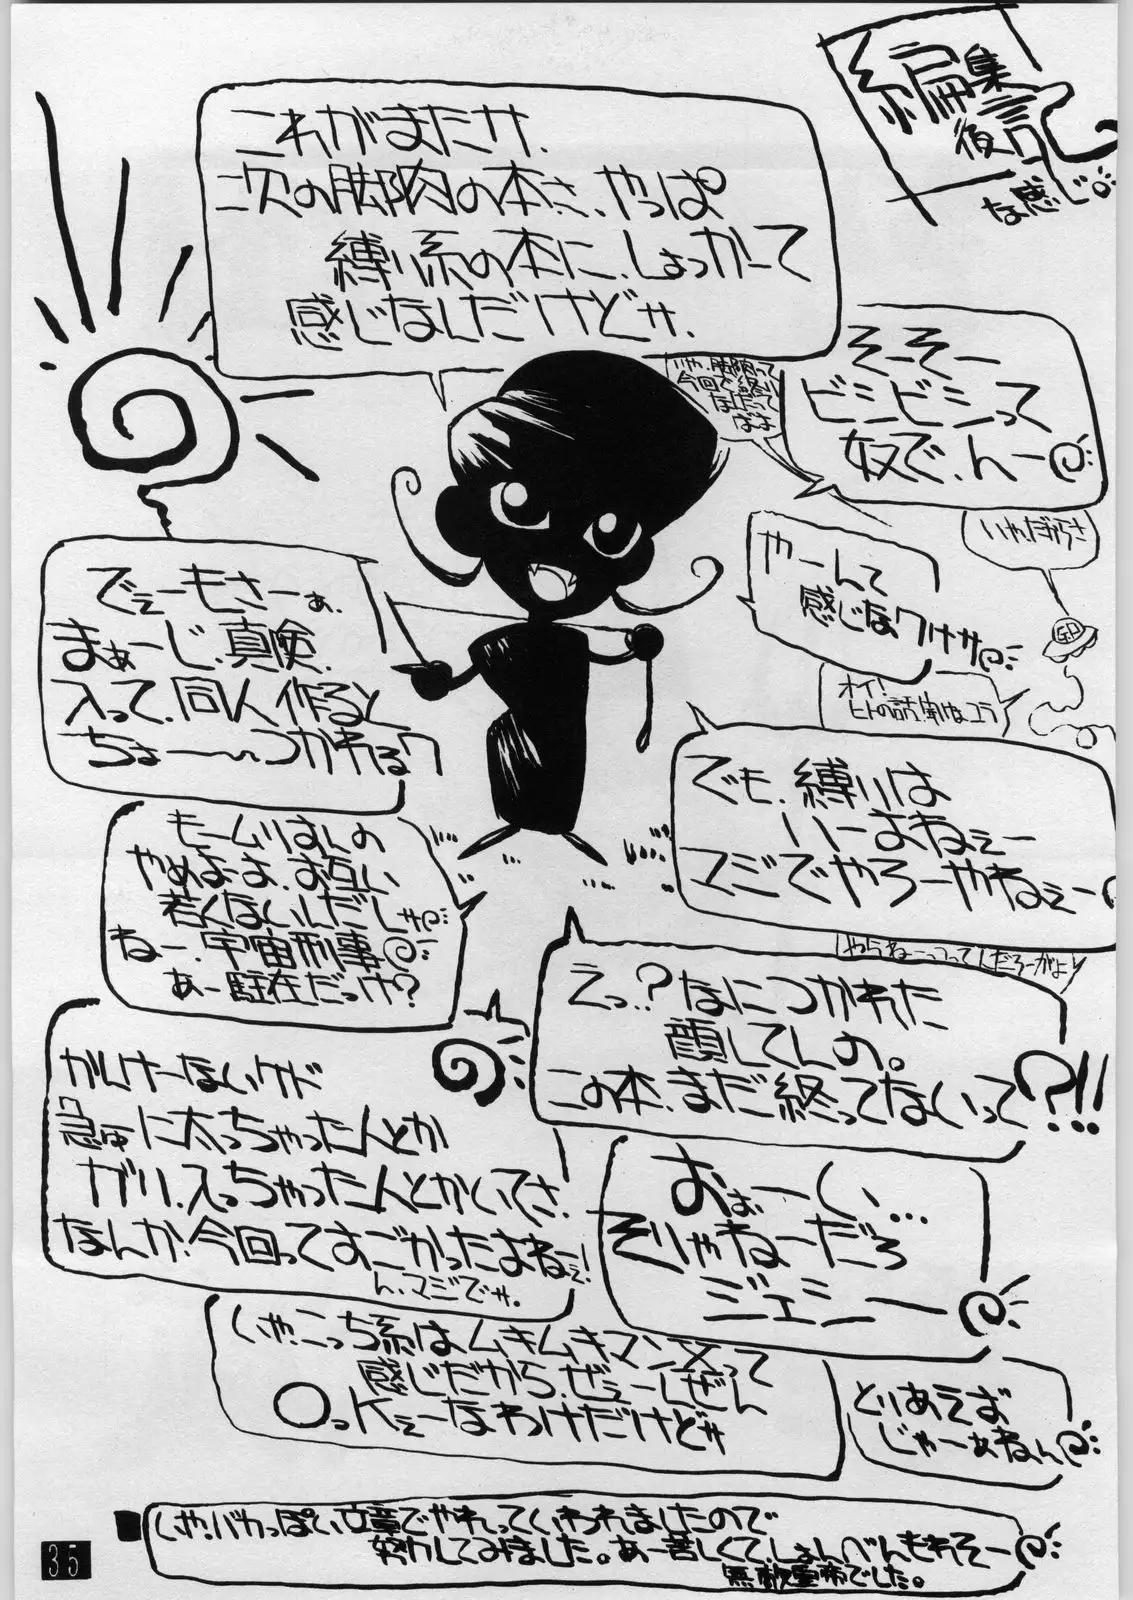 編集
後記
な感じ
これがまたサ、
次の脚肉の本さ、やっぱ
縛り系の本に、しょっかーて
感じなんだけどサ、
いや、脚肉って
今回で終り
なんだって
ばよ
そーそー
ビシビシって
奴で、んー
いや、だからさ
やーんて
感じなワケサ
G.P
オイ!
ヒトの話、聞けよコラ
でぇーもさーぁ、
まぁーじ、真険、
入って、同人作ると
ちょーーつかれるワ
でも、縛りは
いーよねぇー
マジでやろーやねぇー
やらねーってってんだろーがよ
もームリすんの
やめよーよ、お互い
若くないんだしサ
ねー、宇宙刑事
あー駐在だっけ?
えっ?なにつかれた
顔してんの。
この本、まだ終ってないって?!!
かんけーないケド
急に太っちゃったんとか
ガリ、入っちゃったんとかいてさ、
なんか、今回ってすごかったよねーぇ!
ん、マジでサ、
おぉーい…
そりゃねーだろ
ジェシー
いや、こっち系はムキムキマン文って
感じだから、ぜぇーんぜん
OっKぇーなわけだけどサ
とりあえず
じゃーぁねん
いや、バカっぽい文章でやれっていわれましたので
努力してみました。あー苦しくて、しょんべんもれそー
無敵聖帝でした。
35